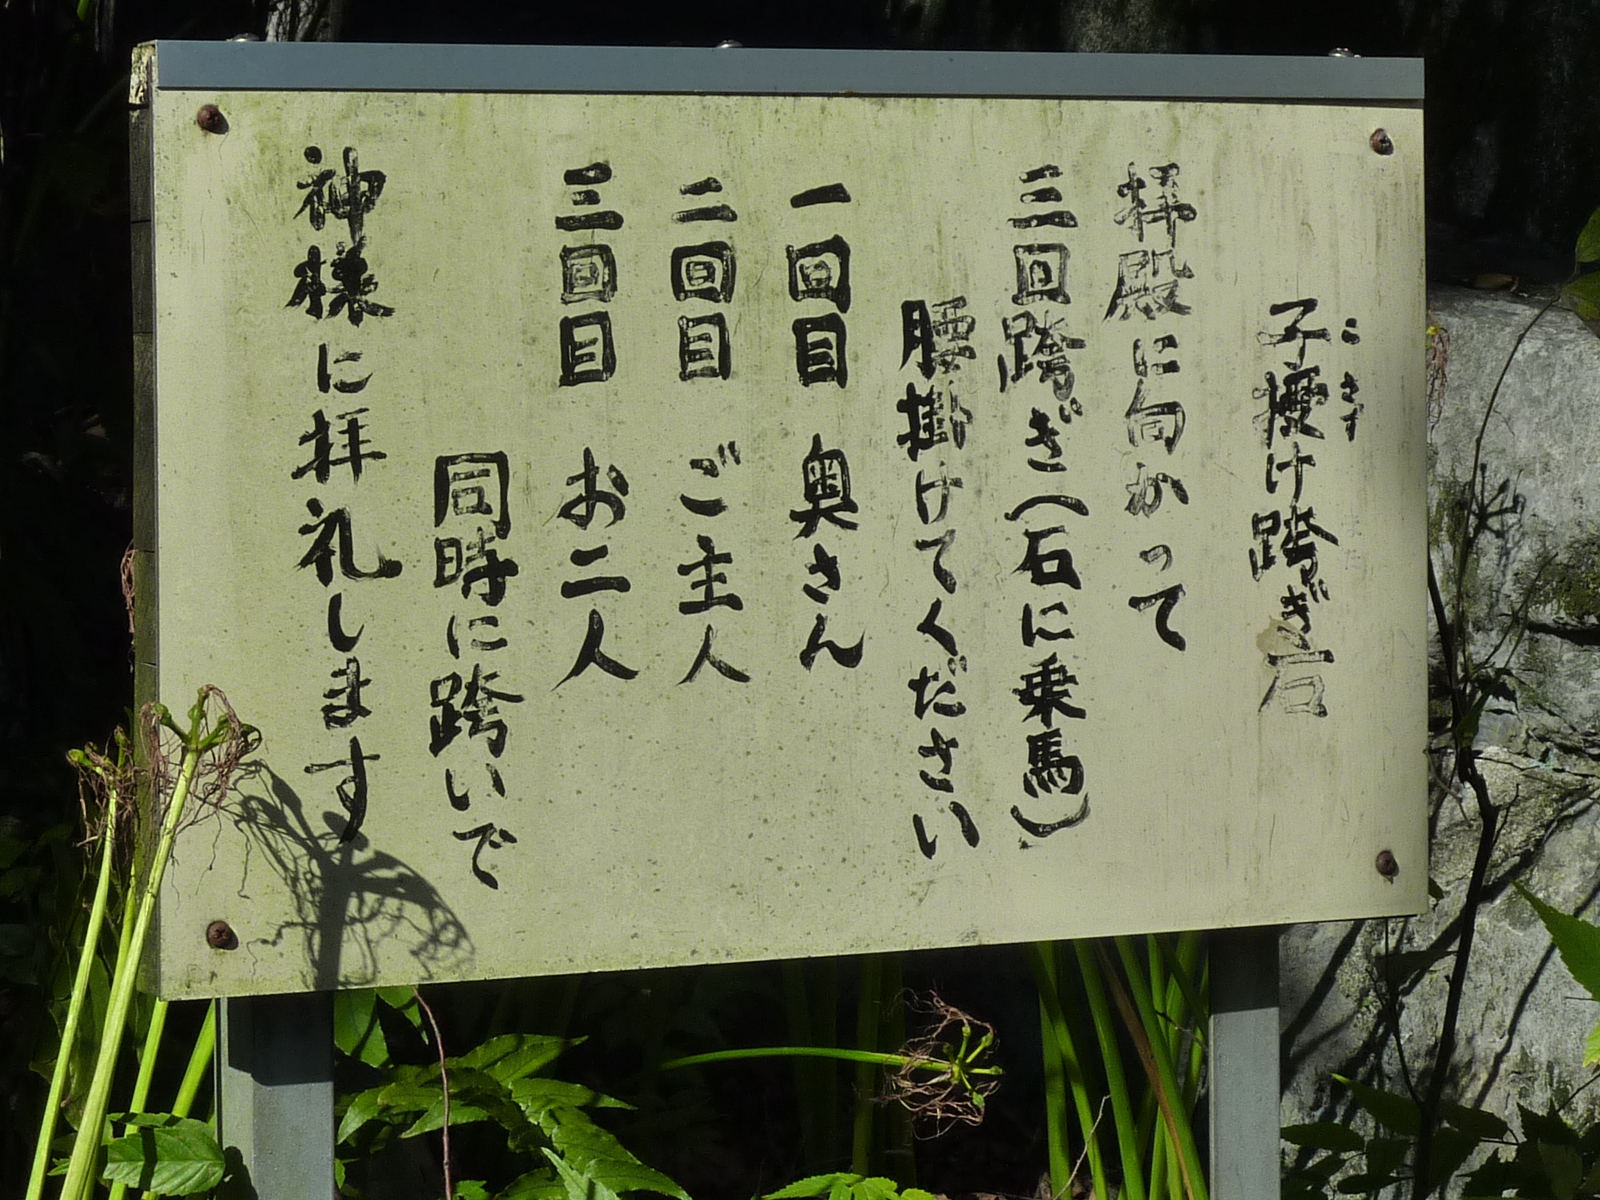 子授け跨ぎ岩
こ さず
拝殿に向かって
三回跨ぎ(石に乗馬)
腰掛けてください
一回目 奥さん
二回目 ご主人
三回目 お二人
同時に跨いで
神様に拝礼します